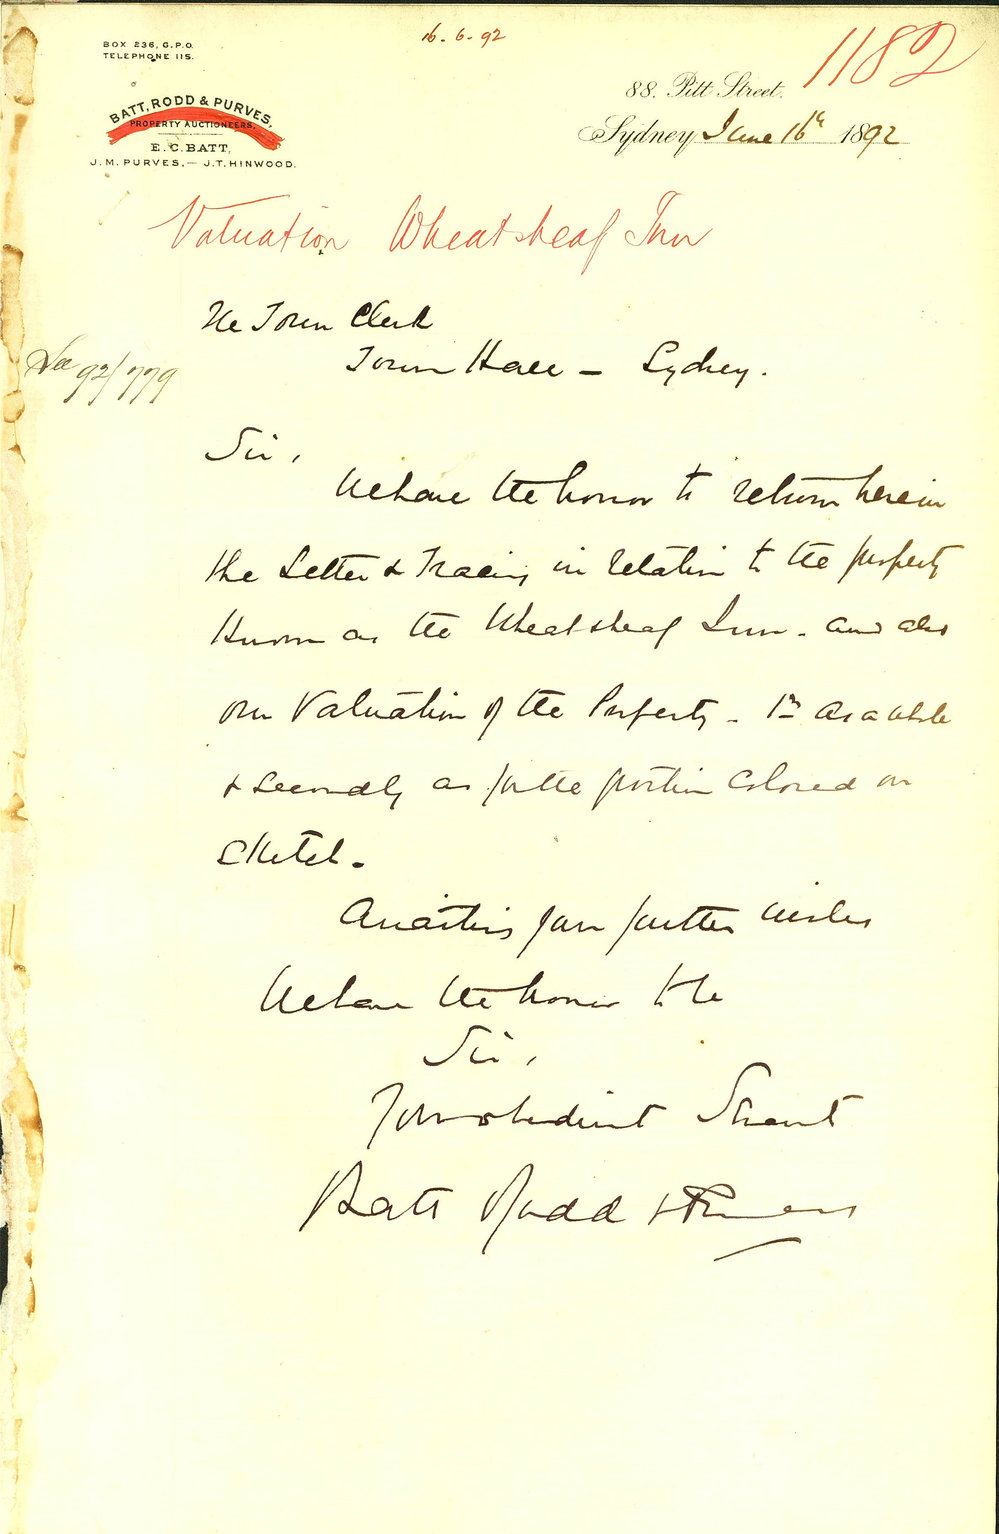 16.6.92
1182
BOX 236, G.P.O.
TELEPHONE 115.
BATT, RODD & PURVES,
PROPERTY AUCTIONEERS.
E. C. BATT,
J. M. PURVES, — J. T. HINWOOD.
88. Pitt Street.
Sydney June 16th 1892
Valuation Wheatsheaf Inn
The Town Clerk
Town Hall – Sydney.
See 92/779
Sir,
We have the honor to return herein
the Letter & Tracing in relation to the property
known as the Wheatsheaf Inn – and also
our Valuation of the Property – 1st As a whole
& secondly as for the portion colored on
sketch –
Awaiting your further wishes
We have the honor to be
Sir,
Your obedient Servant
Batt Rodd & Purves